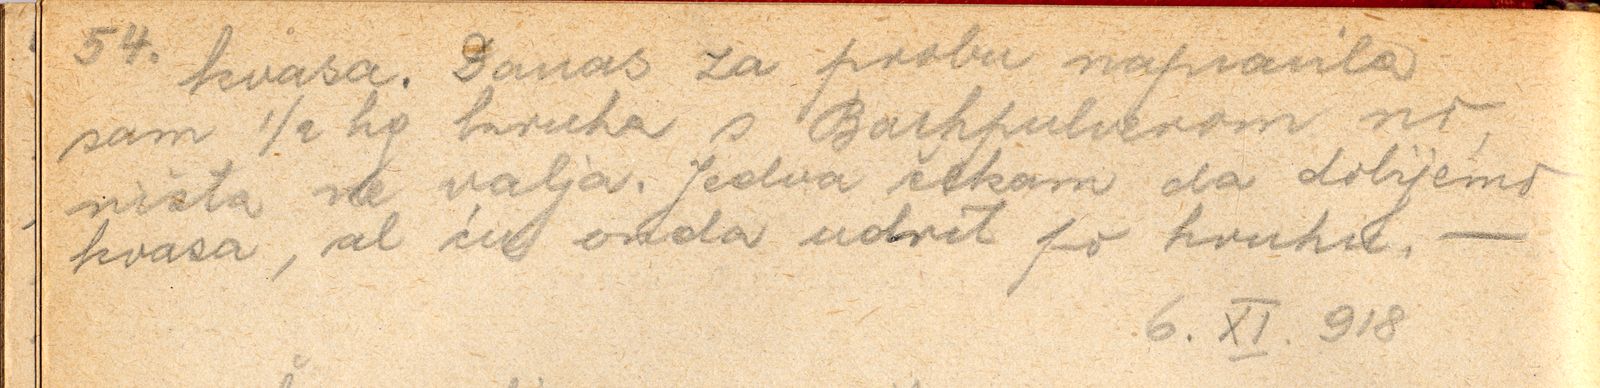 54. kvasa. Danas za probu napravila
sam 1/2 kg kruha s Backpulverom no,
ništa ne valja. Jedva čekam da dobijemo
kvasa, al ću onda udrit po kruhu. —
6. XI. 918